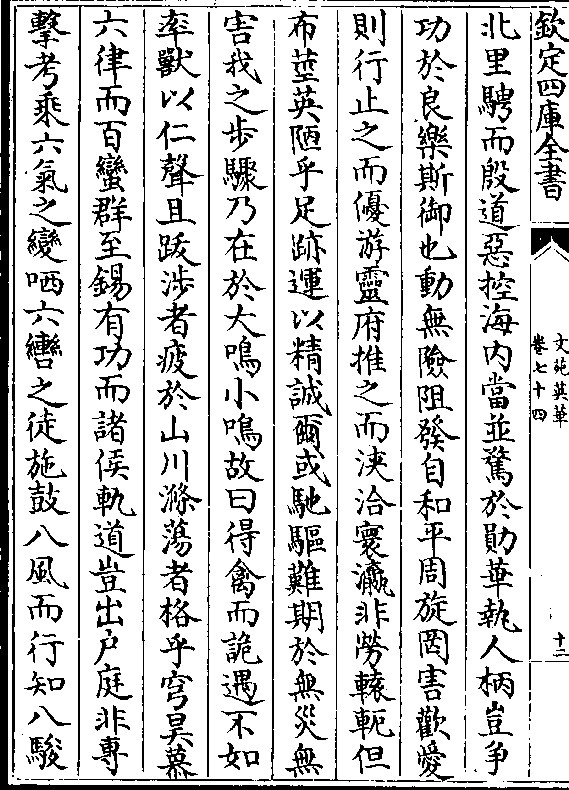 欽定四庫全書
文苑英華
卷七十四
十二
北里騁而殷道惡控海内當並騖於勛華執人柄豈爭
功於良樂斯御也動無險阻發自和平周旋罔害歡愛
則行止之而優游靈府推之而浹洽寰瀛非勞轅軛但
布莖英陋乎足跡運以精誠爾或馳驅難期於無災無
害我之步驟乃在於大鳴小鳴故曰得禽而詭遇不如
率獸以仁聲且跋涉者疲於山川滌蕩者格乎穹昊慕
六律而百蠻群至錫有功而諸侯軌道豈出户庭非專
擊考乘六氣之變哂六轡之徒施鼓八風而行知八駿